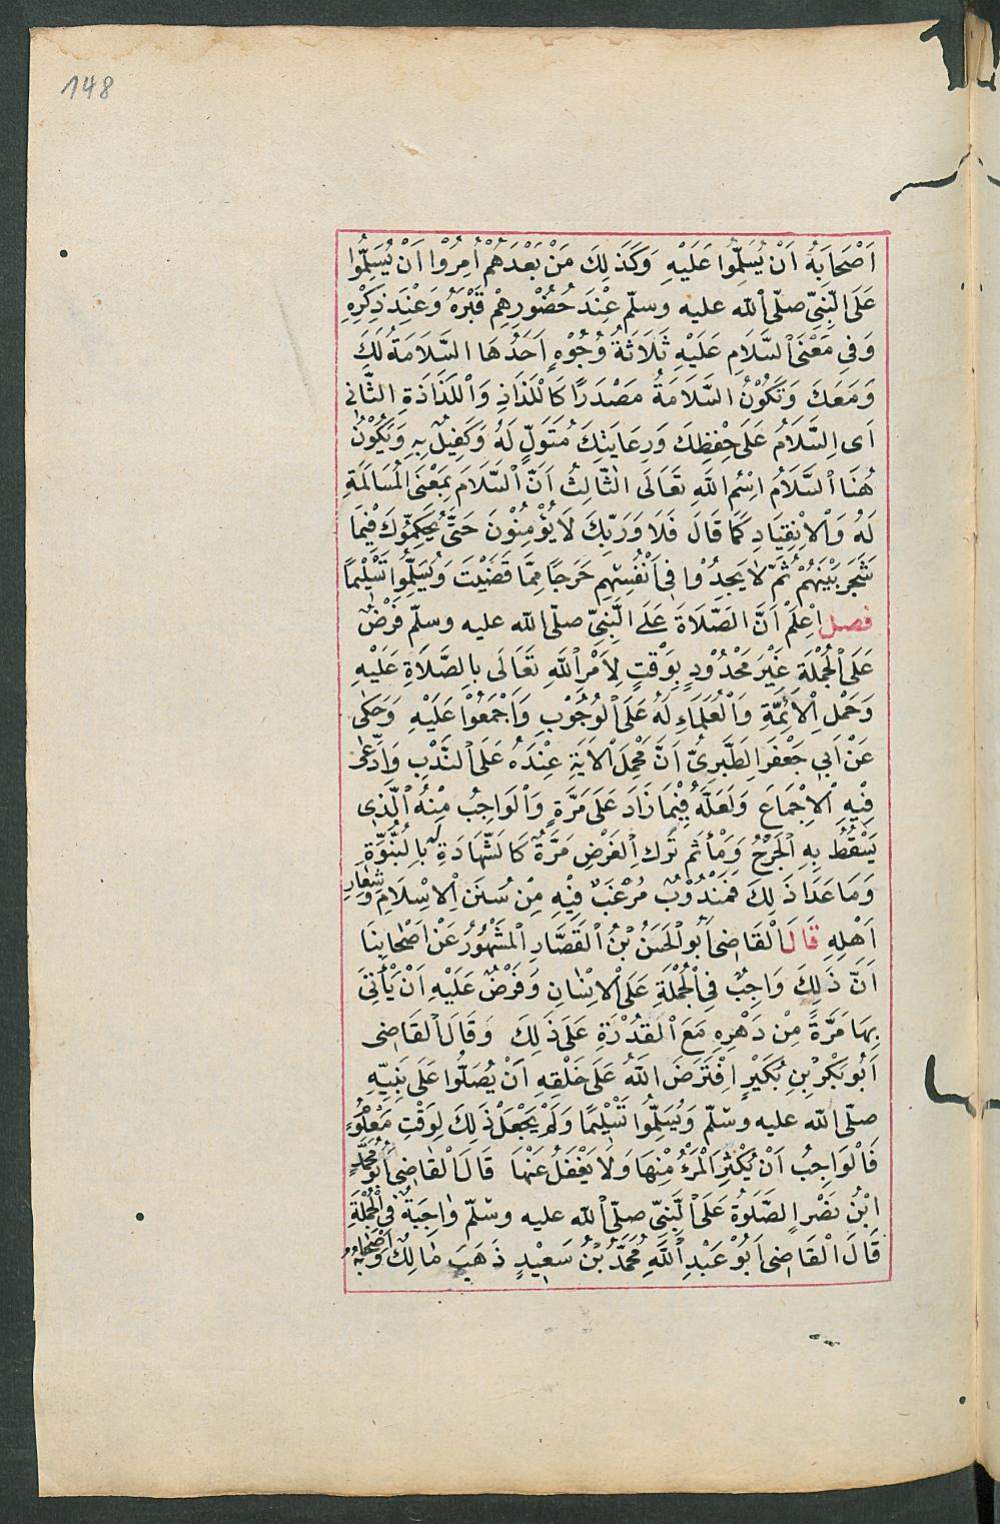 148
اَصْحَابَهُ اَنْ يُسَلِّمُوا عَلَيْهِ وَكَذَلِكَ مَنْ بَعْدَهُمْ اُمِرُوْا اَنْ يُسَلِّمُوا
عَلَى النَّبِىِّ صلّى الله عليه وسلّم عِنْدَ حُضُوْرِهِمْ قَبْرَهُ وَعِنْدَ ذِكْرِهِ
وَفِى مَعْنَى السَّلَامِ عَلَيْهِ ثَلَاثَةُ وُجُوْهٍ اَحَدُهَا السَّلَامَةُ لَكَ
وَمَعَكَ وَتَكُوْنُ السَّلَامَةُ مَصْدَرًا كَاللَّذَاذِ وَاللَّذَاذَةِ الثَّانِى
اَىِ السَّلَامُ عَلَى حِفْظِكَ وَرِعَايَتِكَ مُتَوَلٍّ لَهُ وَكَفِيْلٌ بِهِ وَيَكُوْنُ
هُنَا السَّلَامُ اسْمَ اللَّهِ تَعَالَى الثَّالِثُ اَنَّ السَّلَامَ بِمَعْنَى الْمُسَالَمَةِ
لَهُ وَالْاِنْقِيَادِ كَمَا قَالَ فَلَا وَرَبِّكَ لَا يُؤْمِنُوْنَ حَتَّى يُحَكِّمُوْكَ فِيْمَا
شَجَرَ بَيْنَهُمْ ثُمَّ لَا يَجِدُوْا فِى اَنْفُسِهِمْ حَرَجًا مِمَّا قَضَيْتَ وَيُسَلِّمُوا تَسْلِيْمًا
فصل اِعْلَمْ اَنَّ الصَّلَاةَ عَلَى النَّبِىِّ صلّى الله عليه وسلّم فَرْضٌ
عَلَى الْجُمْلَةِ غَيْرَ مَحْدُوْدٍ بِوَقْتٍ لِاَمْرِ اللَّهِ تَعَالَى بِالصَّلَاةِ عَلَيْهِ
وَحَمْلِ الْاَئِمَّةِ وَالْعُلَمَاءِ لَهُ عَلَى الْوُجُوْبِ وَاَجْمَعُوْا عَلَيْهِ وَحَكٰى
عَنْ اَبِى جَعْفَرَ الطَّبَرِىِّ اَنَّ مَحْمِلَ الْاٰيَةِ عِنْدَهُ عَلَى النَّدْبِ وَادَّعٰى
فِيْهِ الْاِجْمَاعَ وَلَعَلَّهُ فِيْمَا زَادَ عَلَى مَرَّةٍ وَالْوَاجِبُ مِنْهُ الَّذِى
يَسْقُطُ بِهِ الْحَرَجُ وَمَأْثَم تَرْك الْفَرْضِ مَرَّةً كَالشَّهَادَةِ لَهُ بِالنُّبُوَّةِ
وَمَا عَدَا ذَلِكَ فَمَنْدُوْبٌ مُرْغَبٌ فِيْهِ مِنْ سُنَنِ الْاِسْلَامِ وَشِعَارِ
اَهْلِهِ قَالَ الْقَاضِى اَبُو الْحَسَنُ بْنُ الْقَصَّارِ الْمَشْهُوْرُ عَنْ اَصْحَابِنَا
اَنَّ ذَلِكَ وَاجِبٌ فِى الْجُمْلَةِ عَلَى الْاِنْسَانِ وَفَرْضٌ عَلَيْهِ اَنْ يَأْتِىَ
بِهَا مَرَّةً مِنْ دَهْرِهِ مَعَ الْقُدْرَةِ عَلَى ذَلِكَ وَقَالَ الْقَاضِى
اَبُو بَكْرِ بْنِ بُكَيْرٍ اِفْتَرَضَ اللَّهُ عَلَى خَلْقِهِ اَنْ يُصَلُّوا عَلَى نَبِيِّهِ
صلّى الله عليه وسلّم وَيُسَلِّمُوا تَسْلِيْمًا وَلَمْ يَجْعَلْ ذَلِكَ لِوَقْتِ مَعْلُوْمٍ
فَالْوَاجِبُ اَنْ يُكْثِرَ الْمَرْءُ مِنْهَا وَلَا يَغْفَلُ عَنْهَا قَالَ الْقَاضِى اَبُو مُحَمَّدٍ
ابْنُ نَصْرٍ الصَّلٰوةُ عَلَى النَّبِىِّ صلّى الله عليه وسلّم وَاجِبَةٌ فِى الْجُمْلَةِ
قَالَ الْقَاضِى اَبُوْ عَبْدِ اللَّهِ مُحَمَّدُ بْنُ سَعِيْدٍ ذَهَبَ مَالِكٌ وَاَصْحَابُهُ